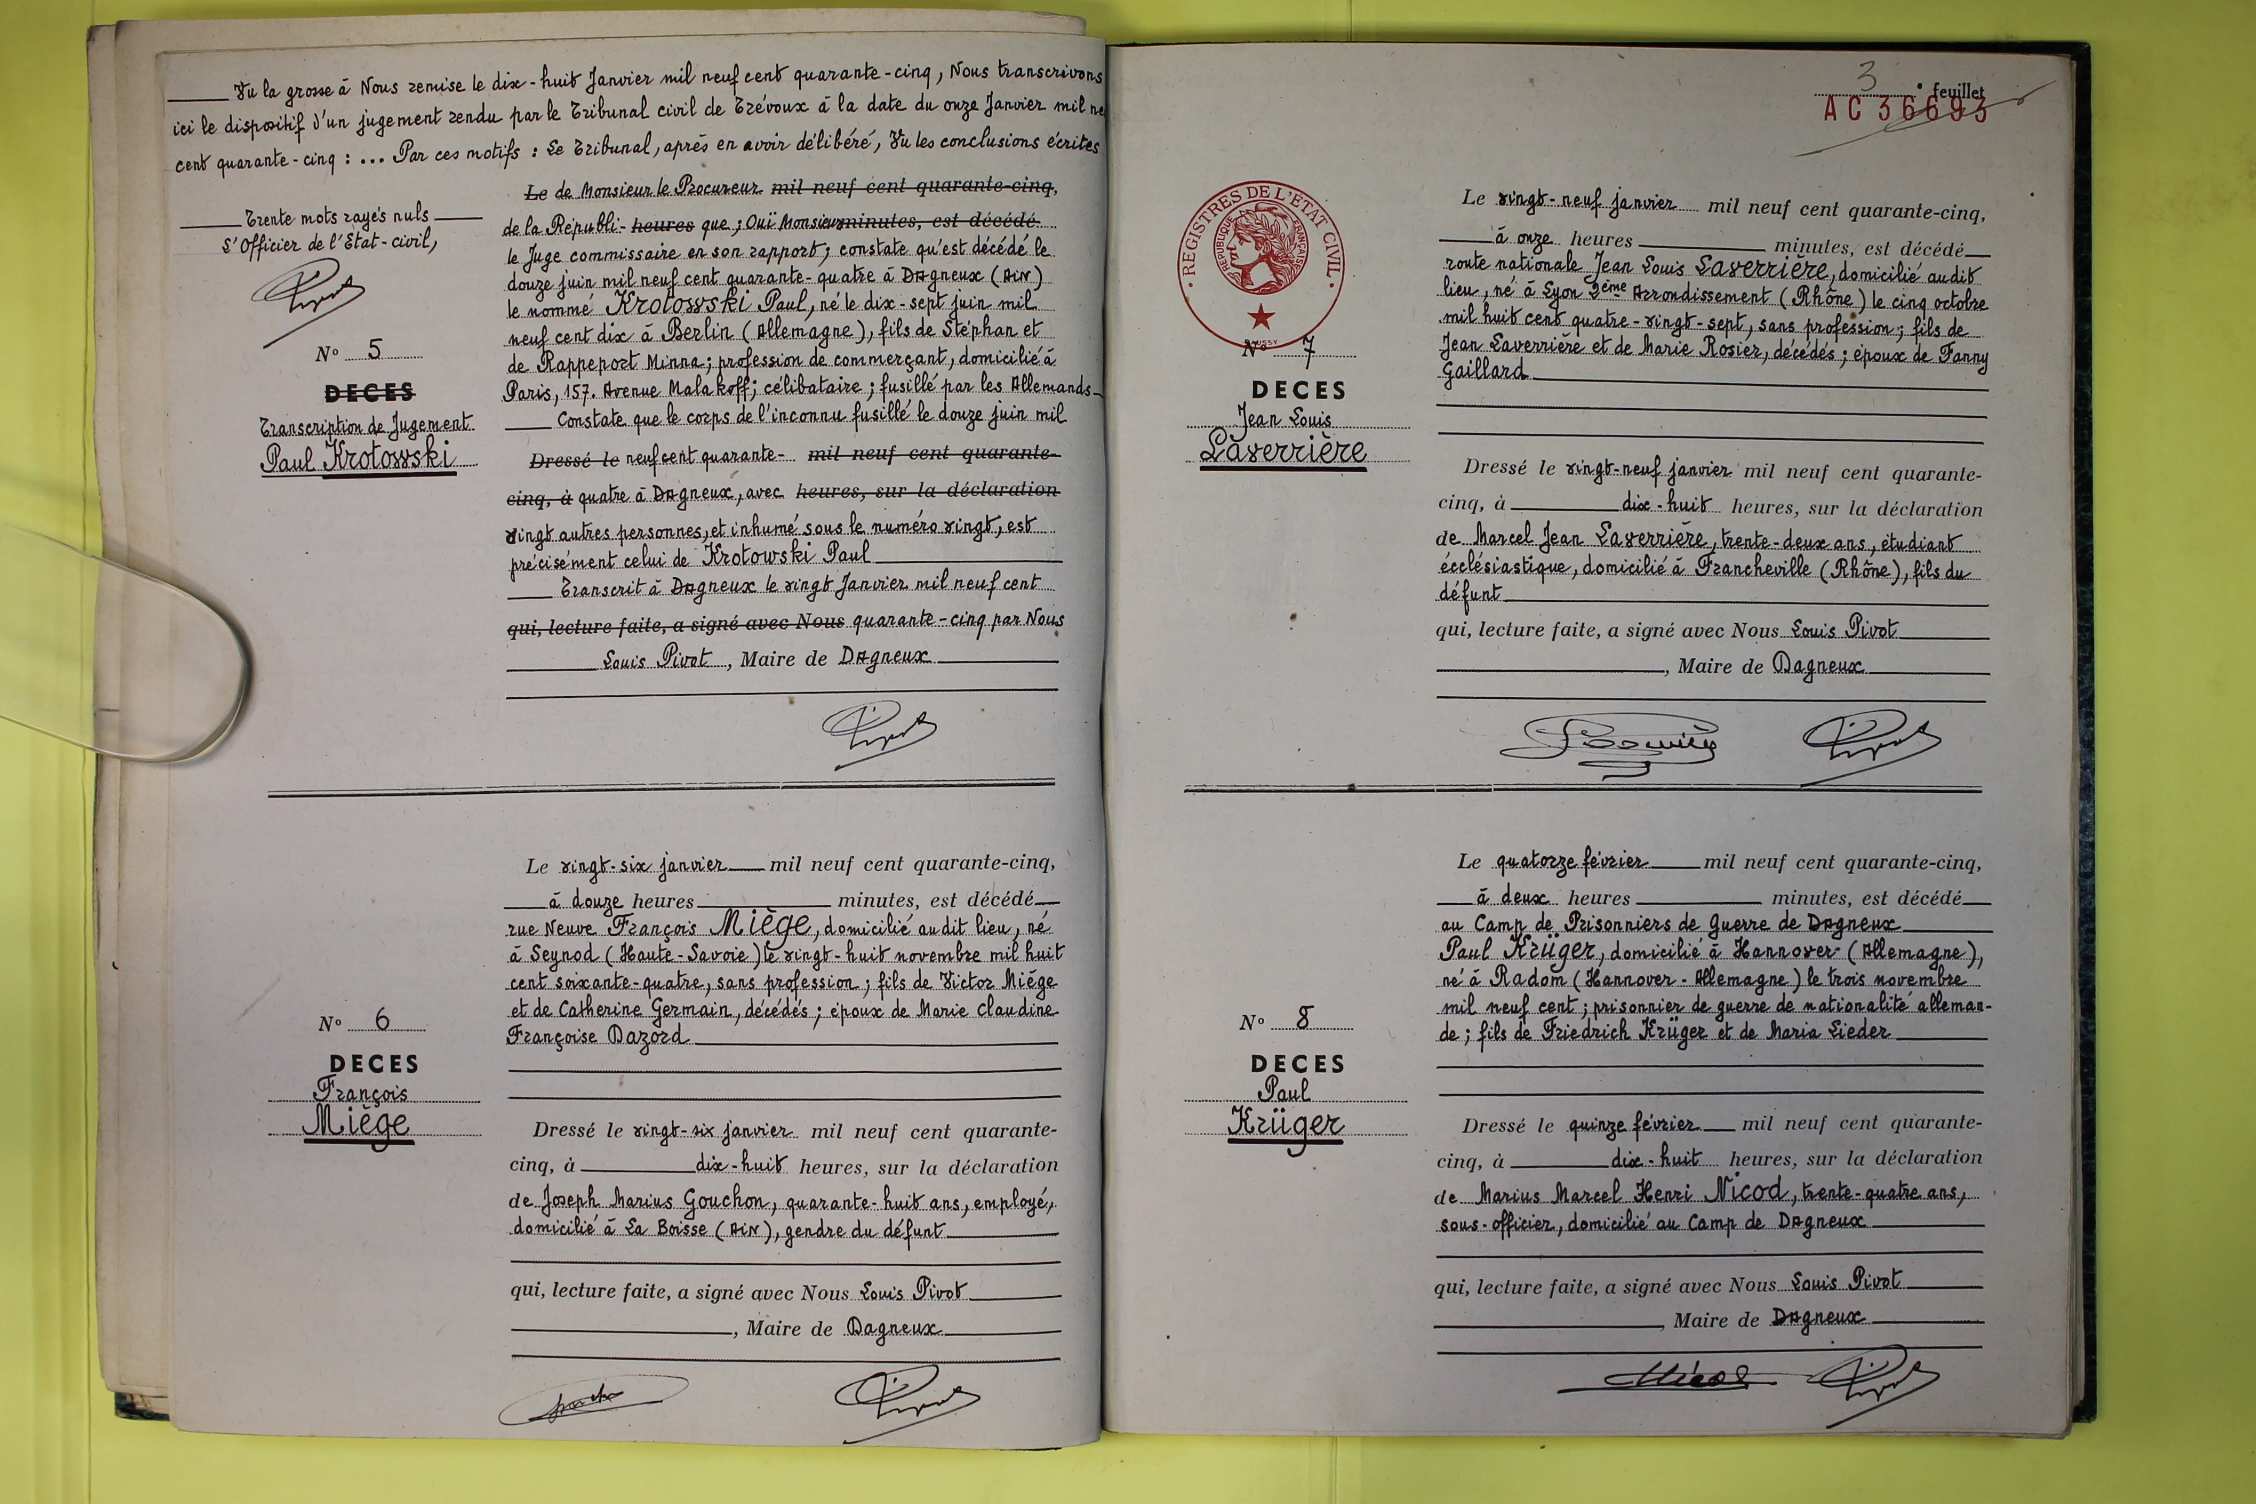 Vu la grosse à Nous remise le dix-huit Janvier mil neuf cent quarante-cinq, Nous transcrivons
ici le dispositif d'un jugement rendu par le Tribunal civil de Trévoux à la date du onze Janvier mil ne
cent quarante-cinq : ... Par ces motifs : Le Tribunal, après en avoir délibéré, Vu les conclusions écrites
Le de Monsieur le Procureur mil neuf cent quarante-cinq,
de la Républi- heures que ; Ouï Monsieur minutes, est décédé
le Juge commissaire en son rapport ; constate qu'est décédé le
douze juin mil neuf cent quarante-quatre à Dagneux (Ain)
le nommé Krotowski Paul, né le dix-sept juin mil
neuf cent dix à Berlin (Allemagne), fils de Stéphan et
de Rappeport Minna ; profession de commerçant, domicilié à
Paris, 157. Avenue Malakoff ; célibataire ; fusillé par les Allemands
Constate que le corps de l'inconnu fusillé le douze juin mil
Dressé le neuf cent quarante- mil neuf cent quarante-
cinq, à quatre à Dagneux, avec heures, sur la déclaration
vingt autres personnes, et inhumé sous le numéro vingt, est
précisément celui de Krotowski Paul
Transcrit à Dagneux le vingt Janvier mil neuf cent
qui, lecture faite, a signé avec Nous quarante-cinq par Nous
Louis Pivot, Maire de Dagneux
Trente mots rayés nuls
L'Officier de l'Etat-civil,
Pivot
N° 5
DECES
Transcription de Jugement
Paul Krotowski
Pivot
Le vingt-six janvier mil neuf cent quarante-cinq,
à douze heures minutes, est décédé
rue Neuve François Miège, domicilié audit lieu, né
à Seynod (Haute-Savoie) le vingt-huit novembre mil huit
cent soixante-quatre, sans profession ; fils de Victor Miège
et de Catherine Germain, décédés ; époux de Marie Claudine
Françoise Dazord
N° 6
DECES
François
Miège
Dressé le vingt-six janvier mil neuf cent quarante-
cinq, à dix-huit heures, sur la déclaration
de Joseph Marius Gouchon, quarante-huit ans, employé,
domicilié à La Boisse (Ain), gendre du défunt
qui, lecture faite, a signé avec Nous Louis Pivot
, Maire de Dagneux
Pivot
3e feuillet
AC 36693
REGISTRES DE L'ETAT CIVIL
REPUBLIQUE FRANÇAISE
Le vingt-neuf janvier mil neuf cent quarante-cinq,
à onze heures minutes, est décédé
route nationale Jean Louis Laverrière, domicilié audit
lieu, né à Lyon 2ème Arrondissement (Rhône) le cinq octobre
mil huit cent quatre-vingt-sept, sans profession ; fils de
Jean Laverrière et de Marie Rosier, décédés ; époux de Fanny
Gaillard
N° 7
DECES
Jean Louis
Laverrière
Dressé le vingt-neuf janvier mil neuf cent quarante-
cinq, à dix-huit heures, sur la déclaration
de Marcel Jean Laverrière, trente-deux ans, étudiant
écclésiastique, domicilié à Francheville (Rhône), fils du
défunt
qui, lecture faite, a signé avec Nous Louis Pivot
, Maire de Dagneux
Pivot
Le quatorze février mil neuf cent quarante-cinq,
à deux heures minutes, est décédé
au Camp de Prisonniers de Guerre de Dagneux
Paul Krüger, domicilié à Hannover (Allemagne),
né à Radom (Hannover-Allemagne) le trois novembre
mil neuf cent ; prisonnier de guerre de nationalité alleman-
de ; fils de Friedrich Krüger et de Maria Lieder
N° 8
DECES
Paul
Krüger
Dressé le quinze février mil neuf cent quarante-
cinq, à dix-huit heures, sur la déclaration
de Marius Marcel Henri Nicod, trente-quatre ans,
sous-officier, domicilié au Camp de Dagneux
qui, lecture faite, a signé avec Nous Louis Pivot
, Maire de Dagneux
Nicod Pivot